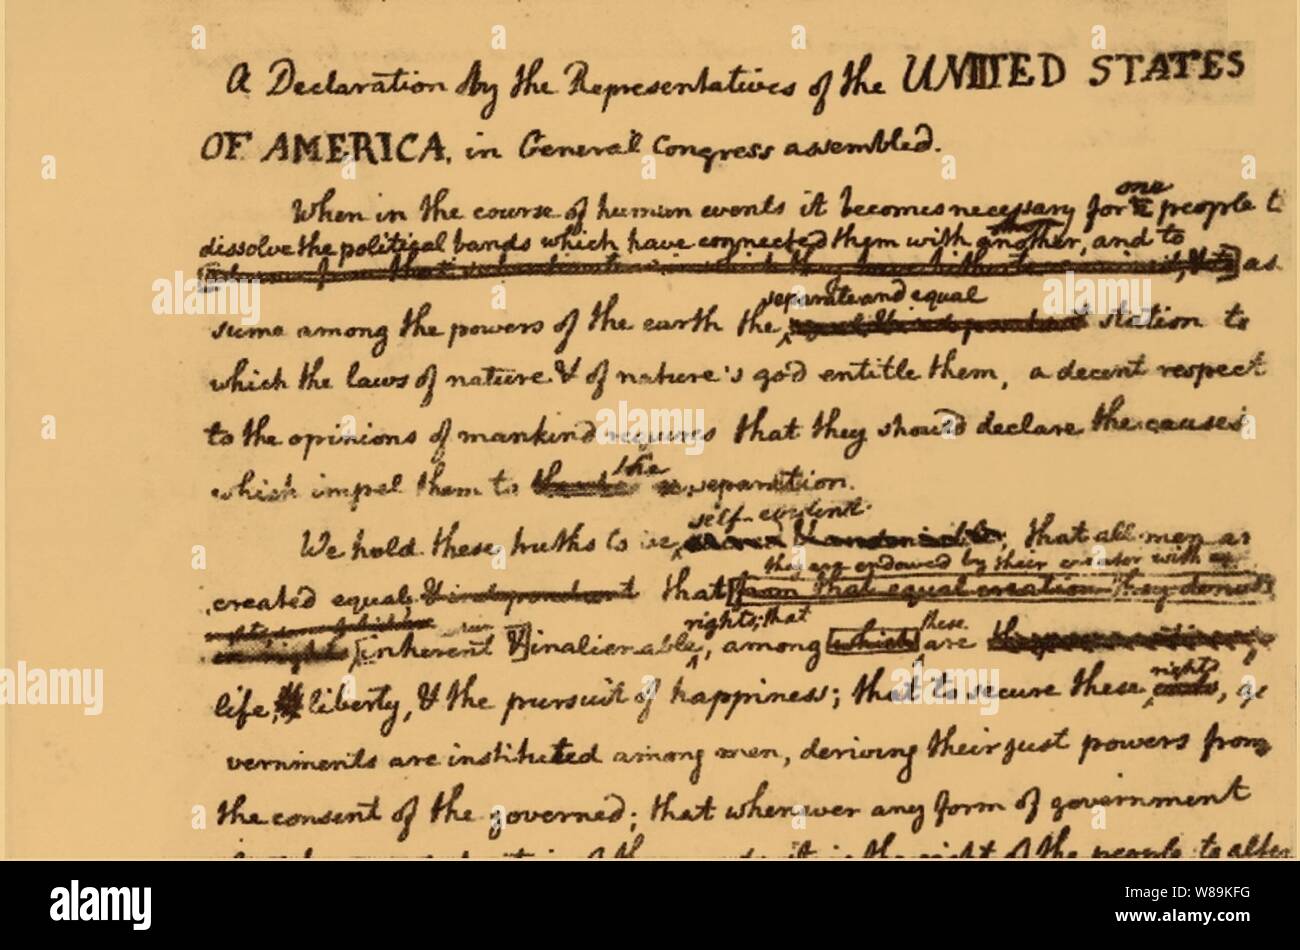 A Declaration by the Representatives of the UNITED STATES
OF AMERICA, in General Congress assembled.
When in the course of human events it becomes necessary for one people to
dissolve the political bands which have connected them with another, and to
as
separate and equal
sume among the powers of the earth the station to
which the laws of nature & of nature's god entitle them, a decent respect
to the opinions of mankind requires that they should declare the causes
which impel them to the separation.
self-evident
We hold these truths to be that all men ar
they are endowed by their creator with
created equal & independant that from that equal creation they
rights; that these
inherent & inalienable, among which are
rights
life, liberty, & the pursuit of happiness; that to secure these, go
vernments are instituted among men, deriving their just powers from
the consent of the governed; that whenever any form of government
it is the right of the people to alter
alamy
Image ID: W89KFG
www.alamy.com